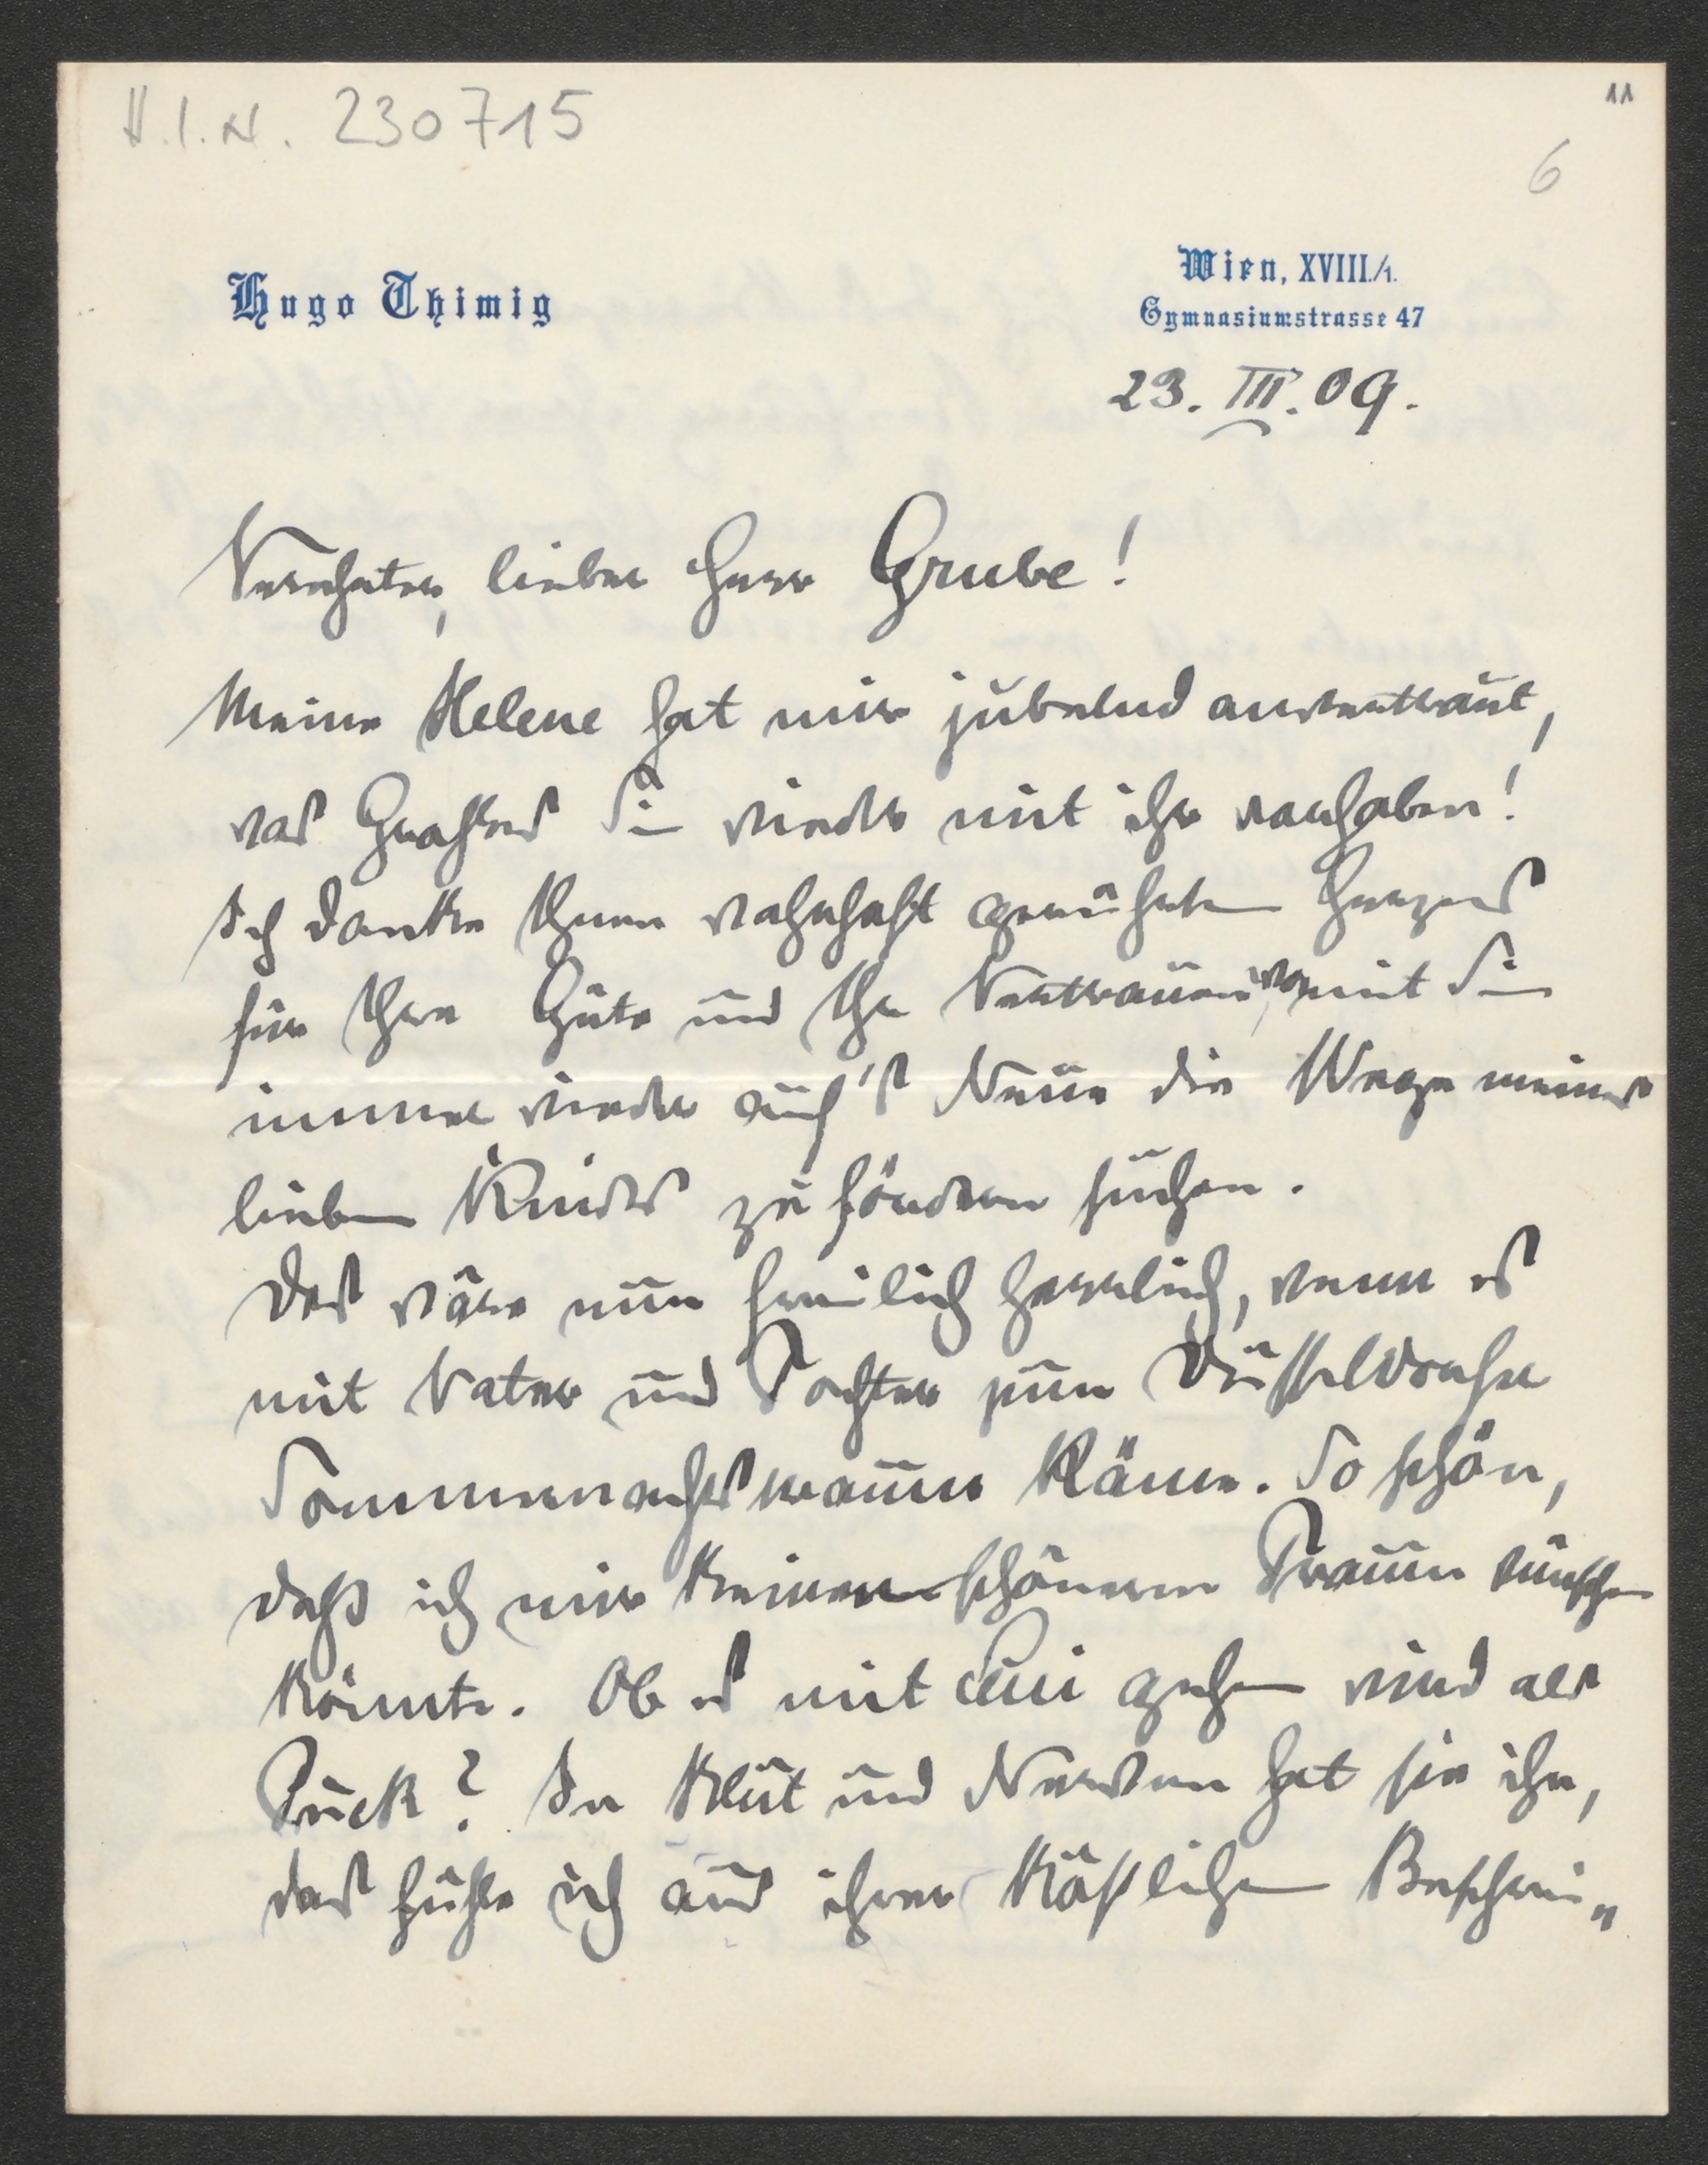 H.I.N. 230715
11
6
Hugo Thimig
Wien, XVIII./1.
Gymnasiumstrasse 47
23. III. 09.
Verehrter, lieber Herr Grube!
Meine Helene hat mir jubelnd anvertraut,
was Großes Sie wieder mit ihr vorhaben!
Ich danke Ihnen wahrhaft gerührten Herzens
für Ihre Güte und Ihr Vertrauen, womit Sie
immer wieder auf's Neue die Wege meines
lieben Kindes zu fördern suchen.
Das wäre nun freilich herrlich, wenn es
mit Vater und Tochter zum Düsseldorfer
Sommernachtstraum käme. So schön,
daß ich mir keinen schöneren Traum wünschen
könnte. Ob es mit gehen wird als
Puck? In Blut und Nerven hat sie ihn,
das fühle ich aus ihrer köstlichen Beschrei„